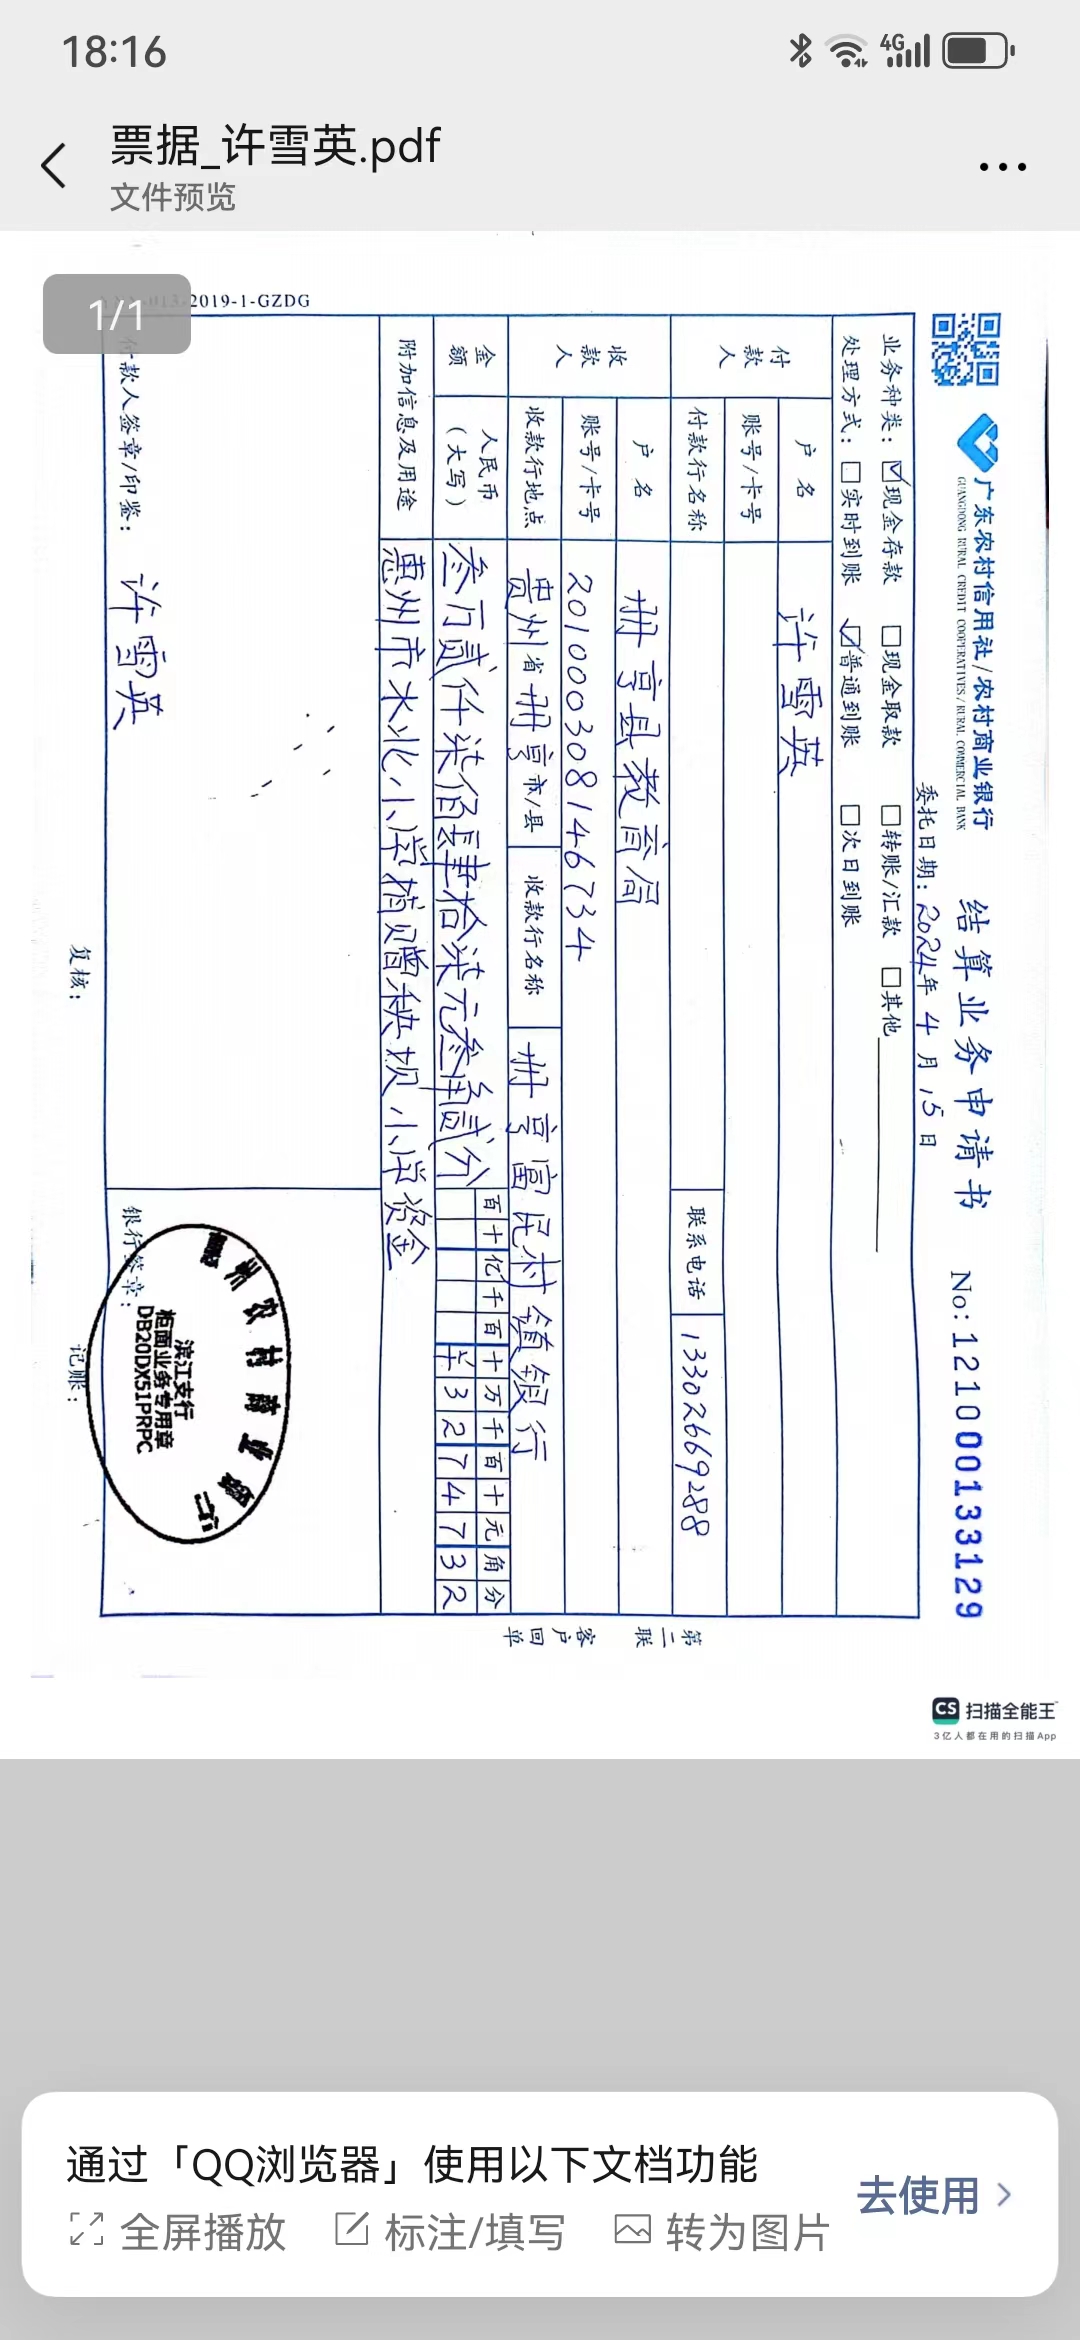 18:16
4G
票据_许雪英.pdf
文件预览
1/1
2019-1-GZDG
广东农村信用社/农村商业银行
GUANGDONG RURAL CREDIT COOPERATIVES/RURAL COMMERCIAL BANK
结算业务申请书
No:1210000133129
委托日期:2024年4月15日
业务种类: 现金存款 现金取款 转账/汇款 其他
处理方式: 实时到账 普通到账 次日到账
付款人
户名 许雪英
账号/卡号
付款行名称
联系电话 13302669288
收款人
户名 册亨县教育局
账号/卡号 201000308146734
收款行地点 贵州省册亨市/县
收款行名称 册亨富民村镇银行
金额 人民币(大写) 叁万贰仟柒佰肆拾柒元叁角贰分
百十亿千百十万千百十元角分
¥3274732
附加信息及用途 惠州市水北小学捐赠秧坝小学资金
付款人签章/印鉴: 许雪英
银行签章:
州农村商业银行
滨江支行
柜面业务专用章
DB20DX51PRPC
复核:
记账:
第二联 客户回单
CS 扫描全能王
3亿人都在用的扫描App
通过「QQ浏览器」使用以下文档功能
全屏播放 标注/填写 转为图片
去使用